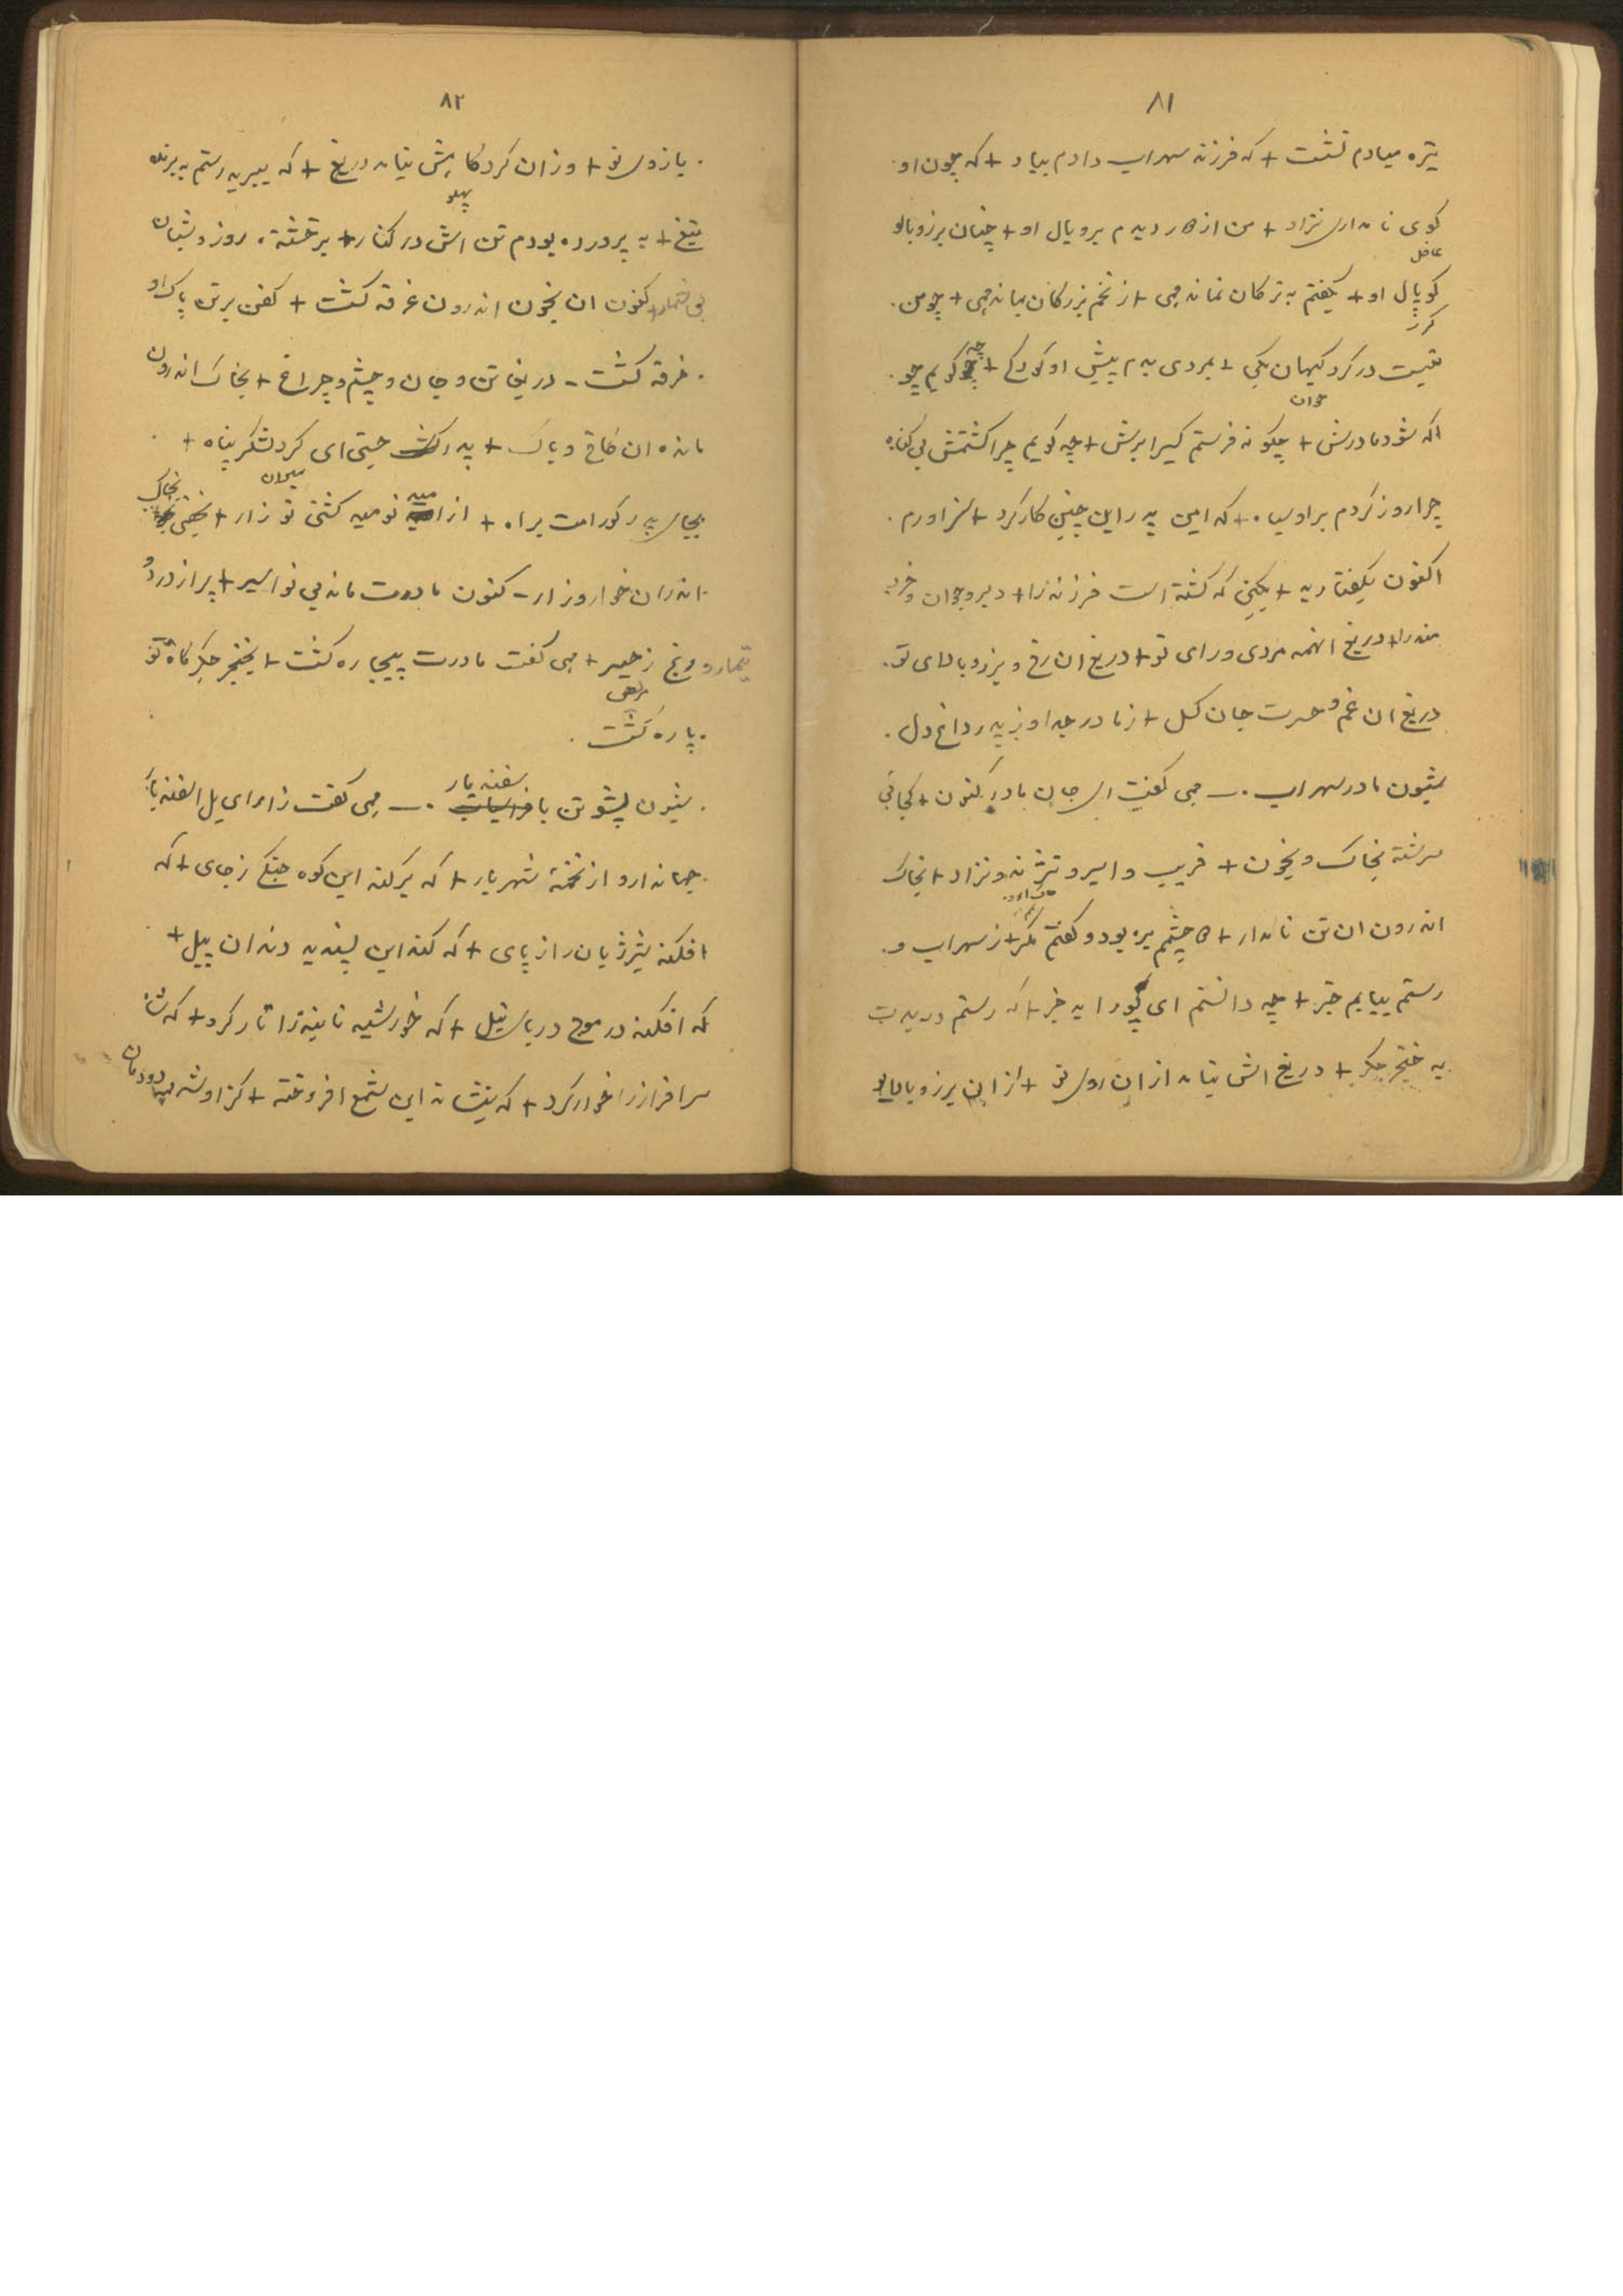 ۸۱
تیره میادم نشست + که فرزند سهراب دادم بباد + که چون او
کوی نامداری نژاد + من از هار دیدم برویال او + چنان برز و بالا
عاقل
کوپال او + بکفتم به ترکان نماند همی + از تخم بزرکان بماند همی + چو من
کرز
نیست در کرد کیهان یکی + بمردی بدم پیش او کودکی + چه کویم چو
جوان
اکه شود مادرش + چکونه فرستم کسیرا برش + چه کویم چرا کشتمش بی کناه
چرا روز کردم بر او سیاه + که امین پدر این چنین کار کرد + سزاورم
اکنون بکفتار بد + بکیتی که کشته است فرزند را + دلیر و جوان و خرد
مند را + دریغ انهمه مردی و رای تو + دریغ ان رخ و برز و بالای تو
دریغ ان غم و حسرت جان کسل + ز مادر جدا و ز پدر داغ دل
شیون مادر سهراب . — همی کفت ای جان مادر کنون + کجائی
سرشته بخاک و بخون + غریب و اسیر و نژند و نزار + بخاک
اندرون ان تن نامدار + دو چشمم بره بود و کفتم مکر + ز سهراب و
رستم بیابم خبر + چه دانستم ای پور اید خبر + که رستم دریدت
به خنجر جکر + دریغ اش نیامد از ان روی تو + از ان برز و بالای
۸۲
بازوی تو + و ز ان کردکاهش نیامد دریغ + که ببرید رستم به برنده
پهلو
تیغ + به پرورده بودم تن اش در کنار + برخشنده روز و شبان
بی شمار + کنون ان بخون اندرون غرقه کشت + کفن بر تن پاک او
خرقه کشت - دریغا تن و جان و چشم و چراغ + بخاک اندرون
مانده ان کاخ و باغ + پدر جستی ای کرد لشکر پناه +
بجای پدر کورامت براه + از امید نومید کشتی تو زار + بخفتی بخاک
اندران خوار و زار - کنون مادرت مانده بی تو اسیر + پر از درد و
تیمار و رنج و زحیر + همی کفت مادرت بیچاره کشت + بخنجر جکر کاه تو
پاره کشت
شیون پشوتن با سفندیار . — همی کفت زار ای یل اسفندیار
جهاندار و از تخمهٔ شهریار + که برکند این کوه جنکی ز جای + که
افکند شیر ژیان را ز پای + که کند این پسندیه دندان پیل +
که افکند در موج دریای نیل + که خورشید تابنده را تار کرد + که شاه
سرافراز را خوار کرد + که بنشاند این شمع افروخته + کز او شد دودمان